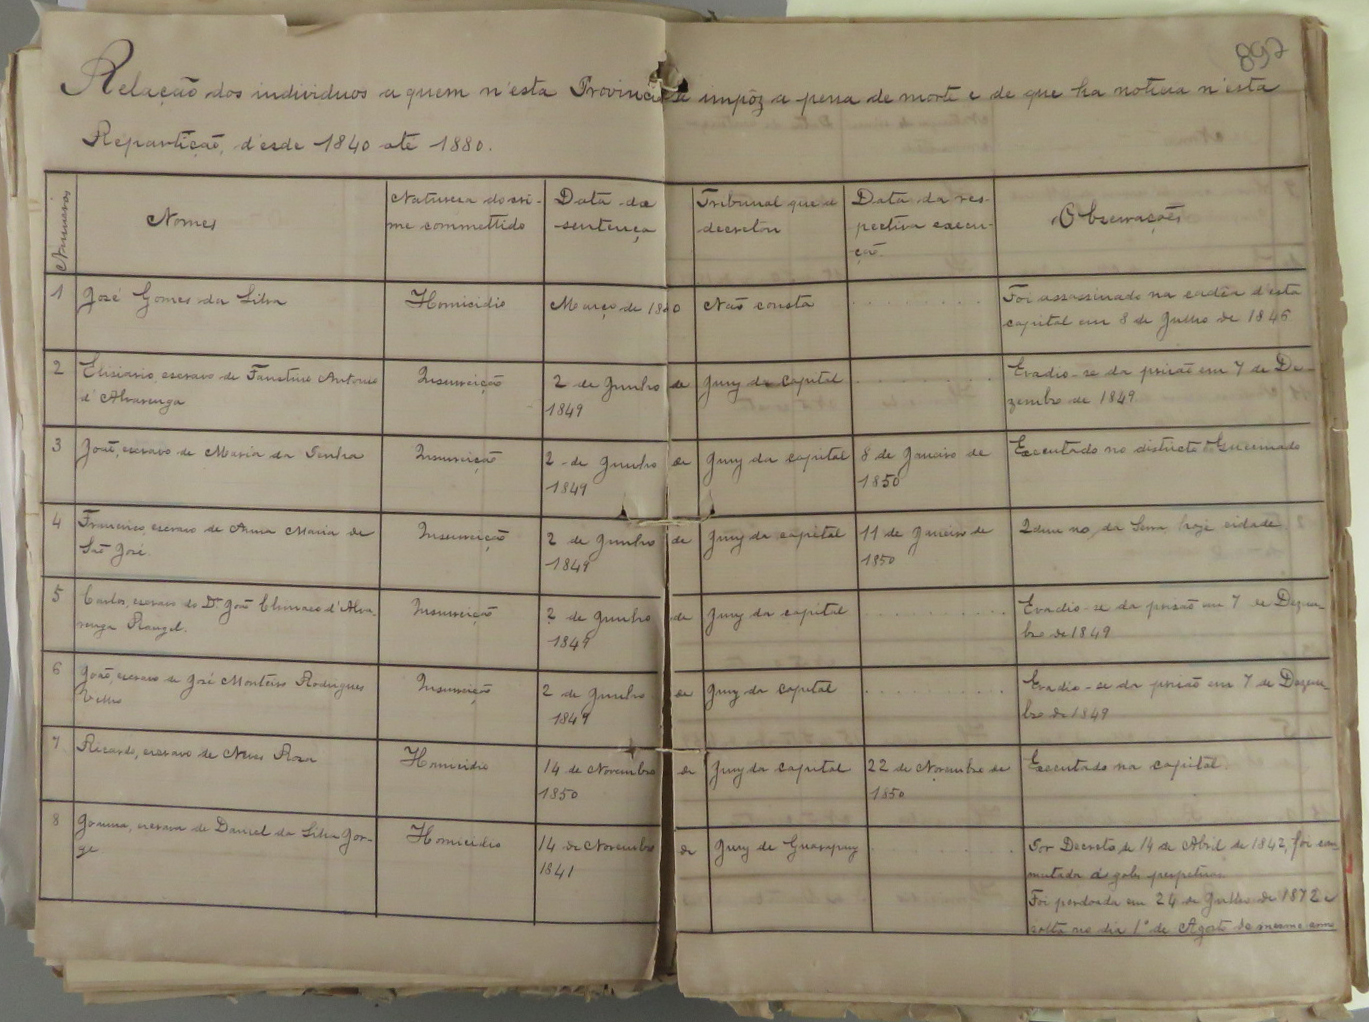 892
Relação dos individuos a quem n'esta Provincia se impôz a pena de morte e de que ha noticia n'esta
Repartição, d'esde 1840 até 1880.
Numeros
Nomes
Natureza do cri-
me commettido
Data da
sentença
Tribunal que a
decretou
Data da res-
pectiva execu-
ção.
Observações
1
José Gomes da Silva
Homicidio
Março de 1840
Não consta
Foi assassinado na cadêa d'esta
capital em 8 de Julho de 1846
2
Elisiario, escravo de Faustino Antonio
d'Alvarenga
Insurreição
2 de Junho de
1849
Jury da capital
Evadio-se da prisão em 7 de De-
zembro de 1849.
3
João, escravo de Maria da Penha
Insurreição
2 de Junho de
1849
Jury da capital
8 de Janeiro de
1850
Executado no districto de Queimado
4
Francisco, escravo de Anna Maria de
São José.
Insurreição
2 de Junho de
1849
Jury da capital
11 de Janeiro de
1850
Idem no da Serra, hoje cidade.
5
Carlos, escravo do Dr. João Climaco d'Alva-
renga Rangel.
Insurreição
2 de Junho de
1849
Jury da capital
Evadio-se da prisão em 7 de Dezem-
bro de 1849
6
João, escravo de José Monteiro Rodrigues
Velho
Insurreição
2 de Junho de
1849
Jury da capital
Evadio-se da prisão em 7 de Dezem-
bro de 1849
7
Ricardo, escravo de Neves Rosa
Homicidio
14 de Novembro de
1850
Jury da capital
22 de Novembro de
1850
Executado na capital.
8
Joanna, escrava de Daniel da Silva Jor-
ge
Homicidio
14 de Novembro de
1841
Jury de Guarapary
Por Decreto de 14 de Abril de 1842, foi com-
mutada á galés perpetuas.
Foi perdoada em 24 de Julho de 1872 e
solta no dia 1º de Agosto do mesmo anno